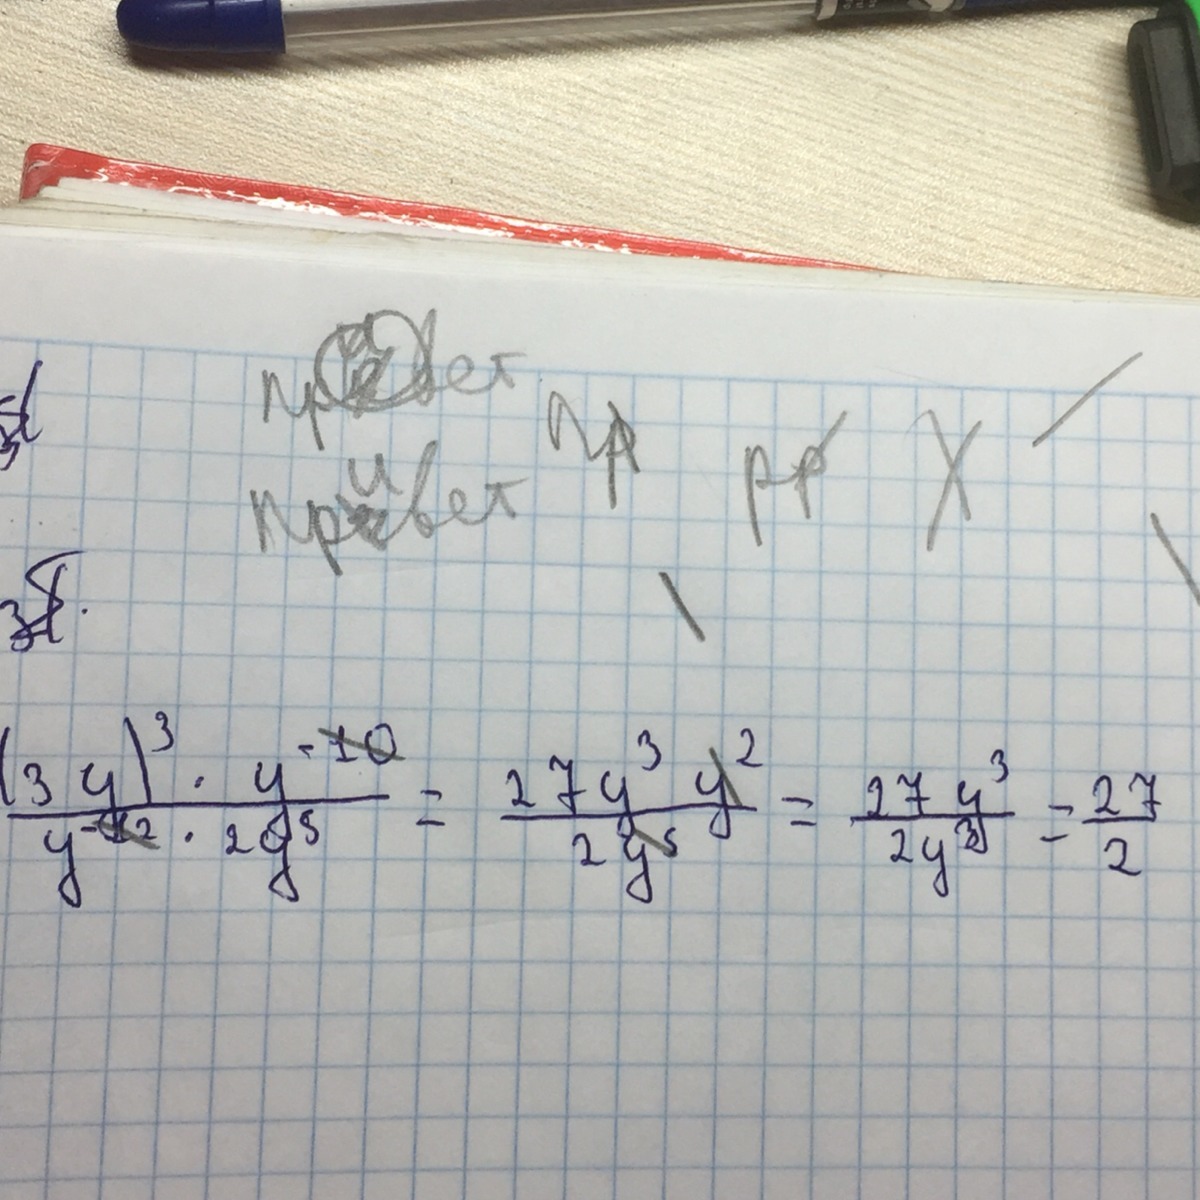 привет
пр рр X
привет
(3y)³ · y⁻¹⁰ / y⁻¹² · 2y⁵ = 27y³ y² / 2y⁵ = 27y³ / 2y³ = 27 / 2